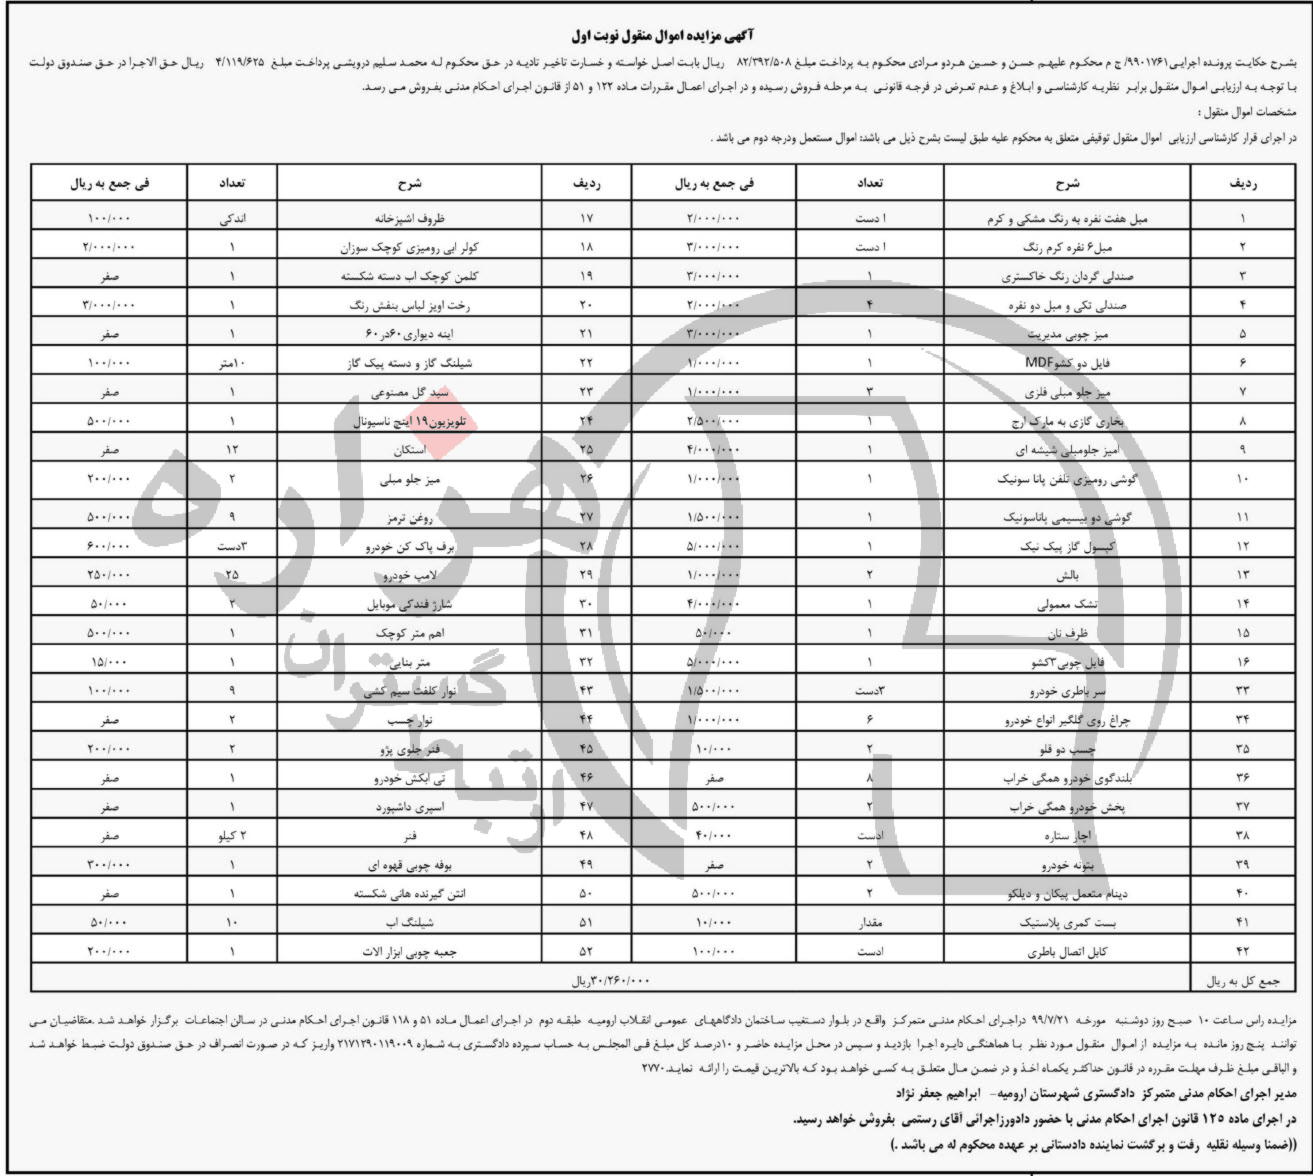 آگهی مزایده اموال منقول نوبت اول
بشرح حکایت پرونده اجرایی۹۹۰۱۷۶۱/ ج م محکوم علیهم حسن و حسین هردو مرادی محکوم به پرداخت مبلغ ۸۲/۳۹۲/۵۰۸ ریال بابت اصل خواسته و خسارت تاخیر تادیه در حق محکوم له محمد سلیم درویشی پرداخت مبلغ ۴/۱۱۹/۶۲۵ ریال حق الاجرا در حق صندوق دولت
با توجه به ارزیابی اموال منقول برابر نظریه کارشناسی و ابلاغ و عدم تعرض در فرجه قانونی به مرحله فروش رسیده و در اجرای اعمال مقررات ماده ۱۲۲ و ۵۱ از قانون اجرای احکام مدنی بفروش می رسد.
مشخصات اموال منقول :
در اجرای قرار کارشناسی ارزیابی اموال منقول توقیفی متعلق به محکوم علیه طبق لیست بشرح ذیل می باشد: اموال مستعمل ودرجه دوم می باشد .
ردیف شرح تعداد فی جمع به ریال ردیف شرح تعداد فی جمع به ریال
۱ مبل هفت نفره به رنگ مشکی و کرم ۱ دست ۲/۰۰۰/۰۰۰ ۱۷ ظروف اشپزخانه اندکی ۱۰۰/۰۰۰
۲ مبل۶ نفره کرم رنگ ۱ دست ۳/۰۰۰/۰۰۰ ۱۸ کولر ابی رومیزی کوچک سوزان ۱ ۲/۰۰۰/۰۰۰
۳ صندلی گردان رنگ خاکستری ۱ ۳/۰۰۰/۰۰۰ ۱۹ کلمن کوچک اب دسته شکسته ۱ صفر
۴ صندلی تکی و مبل دو نفره ۴ ۲/۰۰۰/۰۰۰ ۲۰ رخت اویز لباس بنفش رنگ ۱ ۳/۰۰۰/۰۰۰
۵ میز چوبی مدیریت ۱ ۳/۰۰۰/۰۰۰ ۲۱ اینه دیواری ۶۰در۶۰ ۱ صفر
۶ فایل دو کشوMDF ۱ ۱/۰۰۰/۰۰۰ ۲۲ شیلنگ گاز و دسته پیک گاز ۱۰متر ۱۰۰/۰۰۰
۷ میز جلو مبلی فلزی ۳ ۱/۰۰۰/۰۰۰ ۲۳ سبد گل مصنوعی ۱ صفر
۸ بخاری گازی به مارک ارج ۱ ۲/۵۰۰/۰۰۰ ۲۴ تلویزیون۱۹ اینچ ناسیونال ۱ ۵۰۰/۰۰۰
۹ امیز جلومبلی شیشه ای ۱ ۴/۰۰۰/۰۰۰ ۲۵ استکان ۱۲ صفر
۱۰ گوشی رومیزی تلفن پانا سونیک ۱ ۱/۰۰۰/۰۰۰ ۲۶ میز جلو مبلی ۲ ۲۰۰/۰۰۰
۱۱ گوشی دو بیسیمی پاناسونیک ۱ ۱/۵۰۰/۰۰۰ ۲۷ روغن ترمز ۹ ۵۰۰/۰۰۰
۱۲ کپسول گاز پیک نیک ۱ ۵/۰۰۰/۰۰۰ ۲۸ برف پاک کن خودرو ۳دست ۶۰۰/۰۰۰
۱۳ بالش ۲ ۱/۰۰۰/۰۰۰ ۲۹ لامپ خودرو ۲۵ ۲۵۰/۰۰۰
۱۴ تشک معمولی ۱ ۴/۰۰۰/۰۰۰ ۳۰ شارژ فندکی موبایل ۲ ۵۰/۰۰۰
۱۵ ظرف نان ۱ ۵۰/۰۰۰ ۳۱ اهم متر کوچک ۱ ۵۰۰/۰۰۰
۱۶ فایل چوبی۳کشو ۱ ۵/۰۰۰/۰۰۰ ۳۲ متر بنایی ۱ ۱۵/۰۰۰
۳۳ سر باطری خودرو ۳دست ۱/۵۰۰/۰۰۰ ۴۳ نوار کلفت سیم کشی ۹ ۱۰۰/۰۰۰
۳۴ چراغ روی گلگیر انواع خودرو ۶ ۱/۰۰۰/۰۰۰ ۴۴ نوار چسب ۲ صفر
۳۵ چسب دو قلو ۲ ۱۰/۰۰۰ ۴۵ فنر جلوی پژو ۲ ۲۰۰/۰۰۰
۳۶ بلندگوی خودرو همگی خراب ۸ صفر ۴۶ تی ابکش خودرو ۱ صفر
۳۷ پخش خودرو همگی خراب ۲ ۵۰۰/۰۰۰ ۴۷ اسپری داشبورد ۱ صفر
۳۸ اچار ستاره ۱دست ۴۰/۰۰۰ ۴۸ فنر ۲ کیلو صفر
۳۹ بتونه خودرو ۲ صفر ۴۹ بوفه چوبی قهوه ای ۱ ۳۰۰/۰۰۰
۴۰ دینام متعمل پیکان و دیلکو ۲ ۵۰۰/۰۰۰ ۵۰ انتن گیرنده هانی شکسته ۱ صفر
۴۱ بست کمری پلاستیک مقدار ۱۰/۰۰۰ ۵۱ شیلنگ اب ۱۰ ۵۰/۰۰۰
۴۲ کابل اتصال باطری ۱دست ۱۰۰/۰۰۰ ۵۲ جعبه چوبی ابزار الات ۱ ۲۰۰/۰۰۰
جمع کل به ریال ۳۰/۲۶۰/۰۰۰ریال
مزایده راس ساعت ۱۰ صبح روز دوشنبه مورخه ۹۹/۷/۲۱ دراجرای احکام مدنی متمرکز واقع در بلوار دستغیب ساختمان دادگاههای عمومی انقلاب ارومیه طبقه دوم در اجرای اعمال ماده ۵۱ و ۱۱۸ قانون اجرای احکام مدنی در سالن اجتماعات برگزار خواهد شد .متقاضیان می
توانند پنج روز مانده به مزایده از اموال منقول مورد نظر با هماهنگی دایره اجرا بازدید و سپس در محل مزایده حاضر و ۱۰درصد کل مبلغ فی المجلس به حساب سپرده دادگستری به شماره ۲۱۷۱۲۹۰۱۱۹۰۰۹ واریز که در صورت انصراف در حق صندوق دولت ضبط خواهد شد
و الباقی مبلغ ظرف مهلت مقرره در قانون حداکثر یکماه اخذ و در ضمن مال متعلق به کسی خواهد بود که بالاترین قیمت را ارائه نماید.۲۷۷۰
مدیر اجرای احکام مدنی متمرکز دادگستری شهرستان ارومیه- ابراهیم جعفر نژاد
در اجرای ماده ۱۲۵ قانون اجرای احکام مدنی با حضور دادورزاجرائی آقای رستمی بفروش خواهد رسید.
((ضمنا وسیله نقلیه رفت و برگشت نماینده دادستانی بر عهده محکوم له می باشد .)
هزاره
گستران
ارتباط